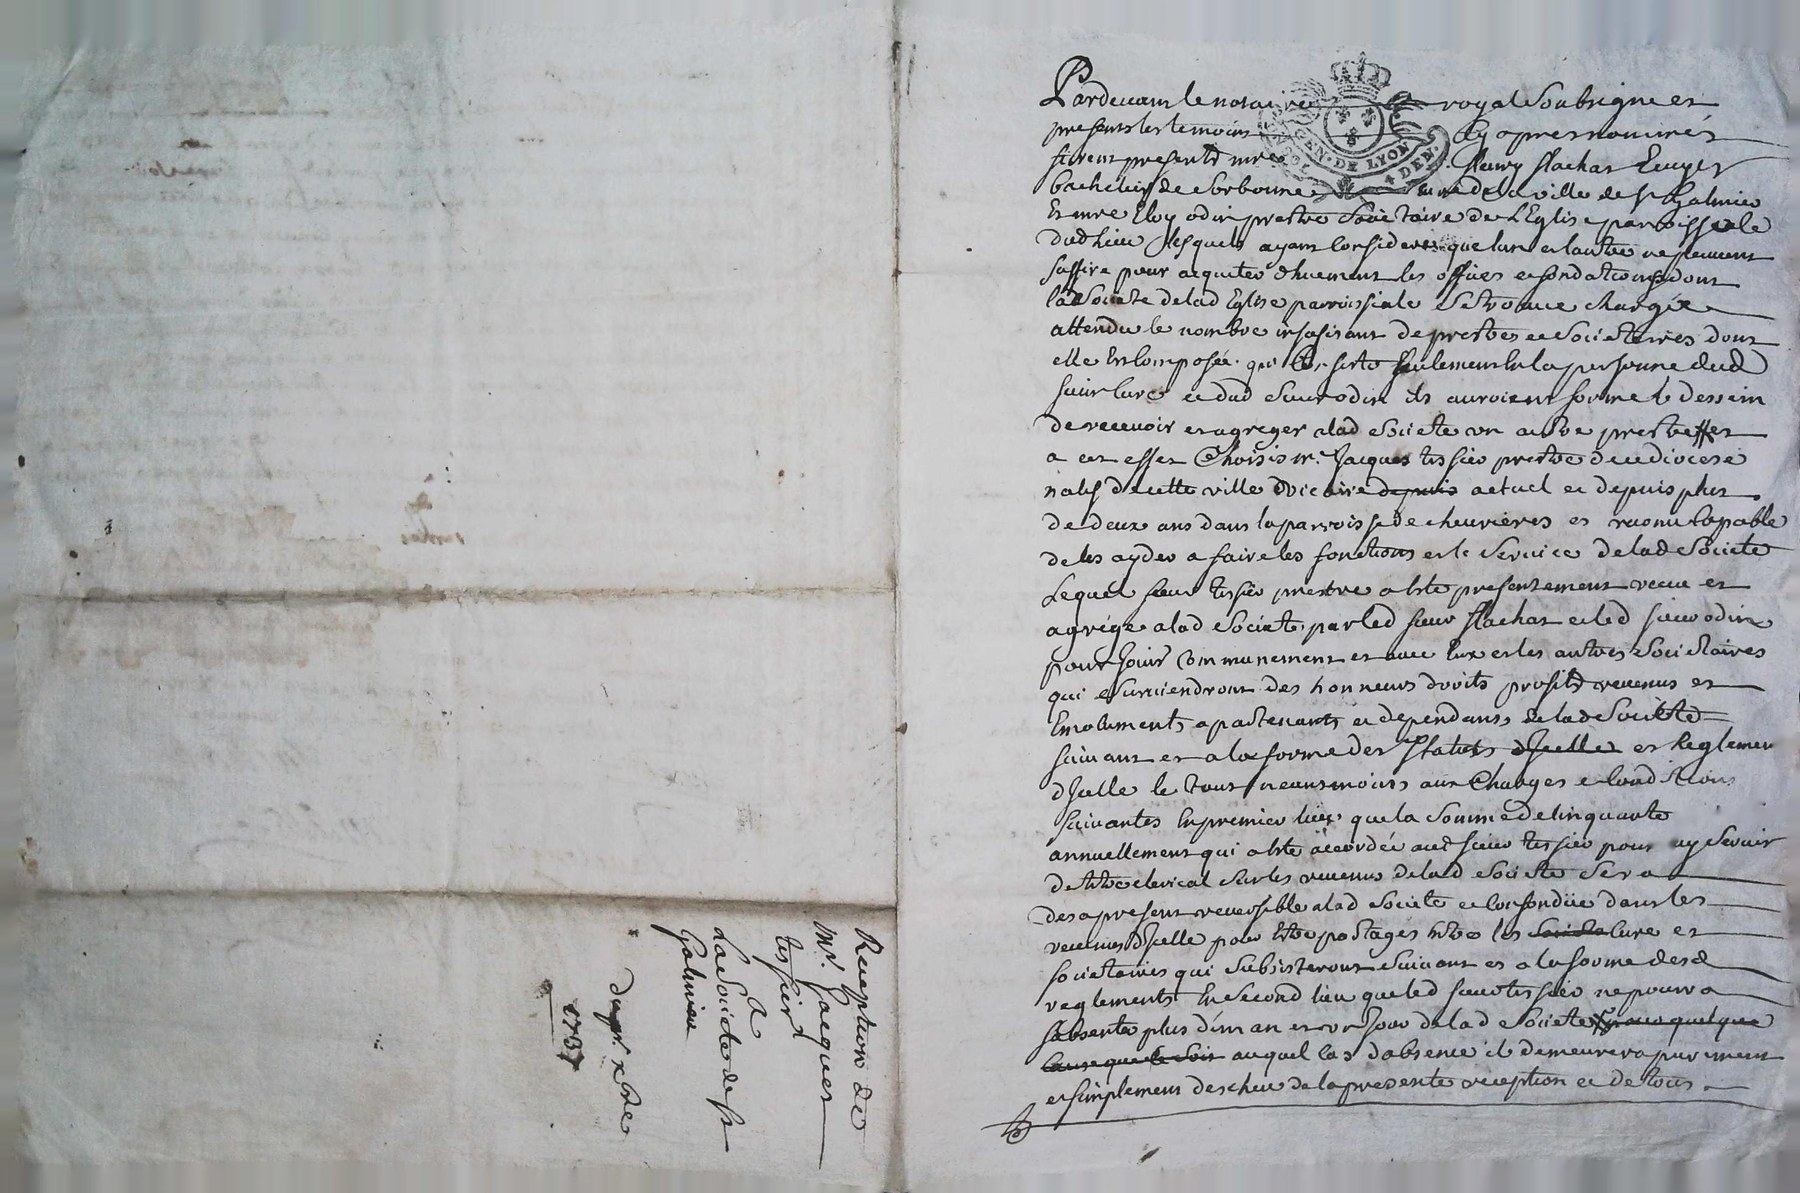 Reception de
mr. Jacques
tessier
a
La Societe de st
Galmier
du 9r. xbre
1737
GEN. DE LYON
DEN.
Pardevant le notaire royal Soubsigne et
presents les temoins cy apres nommés
furent presents mre fleury flachat Ecuyer
bachelier de Sorbonne cure de la ville de st Galmier
Et mre Eloy odin prestre Societaire de L'Eglise parroissiale
dud lieu lesquels ayant Consideré que lun et lautre ne peuvent
suffire pour acquiter dhuement les offices et fondations dont
lad Societe de lad Eglise parroissiale Se trouve chargée
attendu le nombre insufisant de prestres et Societaires dont
elle Est Composée qui Consiste Seulement En la personne dud
sieur Curé et dud Sieur odin ils auroient formé le dessein
de recevoir et agreger a lad Societe un autre prestre et
a cet effet Choisis mr. Jacques tissier prestre de ce diocese
natif de cette ville vicaire depuis actuel et depuis plus
de deux ans dans la parroisse de chevrieres et reconu Capable
de les ayder a faire les fonctions et le Service de lad Societe
Lequel sieur tissier prestre a Esté presentement receu et
agrégé a lad Societe par led sieur flachat et led sieur odin
pour Jouir Communement et avec Eux et les autres Societaires
qui Surviendront des honneurs droits profits revenus et
Emoluments apartenants et dependans de lad Societé
suivant et a la forme des Statuts dJcelle et Reglemen
dJcelle le tout neantmoins aux Charges et Conditions
suivantes En premier lieu que la Somme de Cinquante
annuellement qui a Esté accordée aud sieur tissier pour uy Servir
de titre clerical Sur les revenus de lad Societe Sera
des a present reversible a lad Societe et Confondüe dans les
revenus dJcelle pour Estre partagés Entre les Societa Cure et
Societaires qui Subsisteront Suivant et a la forme desd
reglements En Second lieu que led sieur tissier ne pourra
sabsenter plus dún an et un Jour de lad Societe pour quelque
Cause que ce Soit auquel Cas dabsence il demeurera purement
et simplement descheu de la presente reception et de tous